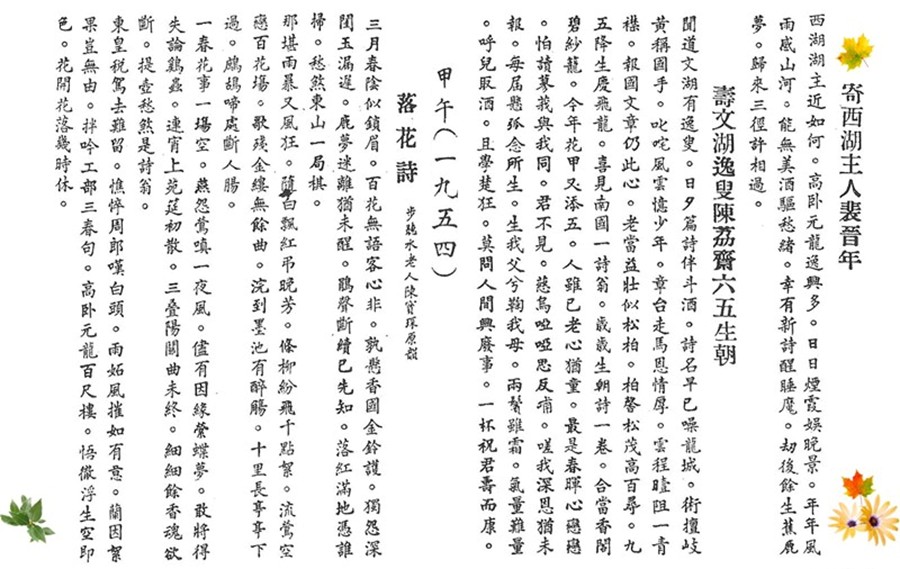 寄西湖主人裴晉年
西湖湖主近如何。高卧元龍逸興多。日日煙霞娛晚景。年年風
雨感山河。能無美酒驅愁緒。幸有新詩醒睡魔。劫後餘生蕉鹿
夢。歸來三徑許相過。
壽文湖逸叟陳荔齋六五生朝
聞道文湖有逸叟。日夕篇詩伴斗酒。詩名早已噪龍城。術擅岐
黃稱國手。叱咤風雲憶少年。章台走馬恩情厚。雲程曀阻一青
襟。報國文章仍此心。老當益壯似松柏。柏馨松茂高百尋。九
五降生慶飛龍。喜見南國一詩翁。歲歲生朝詩一卷。合當香閣
碧紗籠。今年花甲又添五。人雖已老心猶童。最是春暉心戀戀
。怕讀蓼莪與我同。君不見。慈烏啞啞思反哺。嗟我深恩猶未
報。每屆懸弧念所生。生我父兮鞠我母。兩鬢雖霜。氣量難量
。呼兒取酒。且學楚狂。莫問人間興廢事。一杯祝君壽而康。
甲午（一九五四）
落花詩
步聽水老人陳寶琛原韻
三月春陰似鎖眉。百花無語客心非。孰懸香國金鈴護。獨怨深
閨玉漏遲。鹿夢迷離猶未醒。鵑聲斷續已先知。落紅滿地憑誰
掃。愁煞東山一局棋。
那堪雨暴又風狂。隨白飄紅弔晚芳。條柳紛飛千點絮。流鶯空
戀百花場。歌殘金縷無餘曲。浣到墨池有醉觴。十里長亭亭下
過。鷓鴣啼處斷人腸。
一春花事一場空。燕怨鶯嗔一夜風。儘有因緣縈蝶夢。敢將得
失論鷄蟲。連宵上苑筵初散。三叠陽關曲未終。細細餘香魂欲
斷。提壺愁煞是詩翁。
東皇税駕去難留。憔悴周郎嘆白頭。雨妬風摧如有意。蘭因絮
果豈無由。拌吟工部三春句。高卧元龍百尺樓。悟徹浮生空即
色。花開花落幾時休。